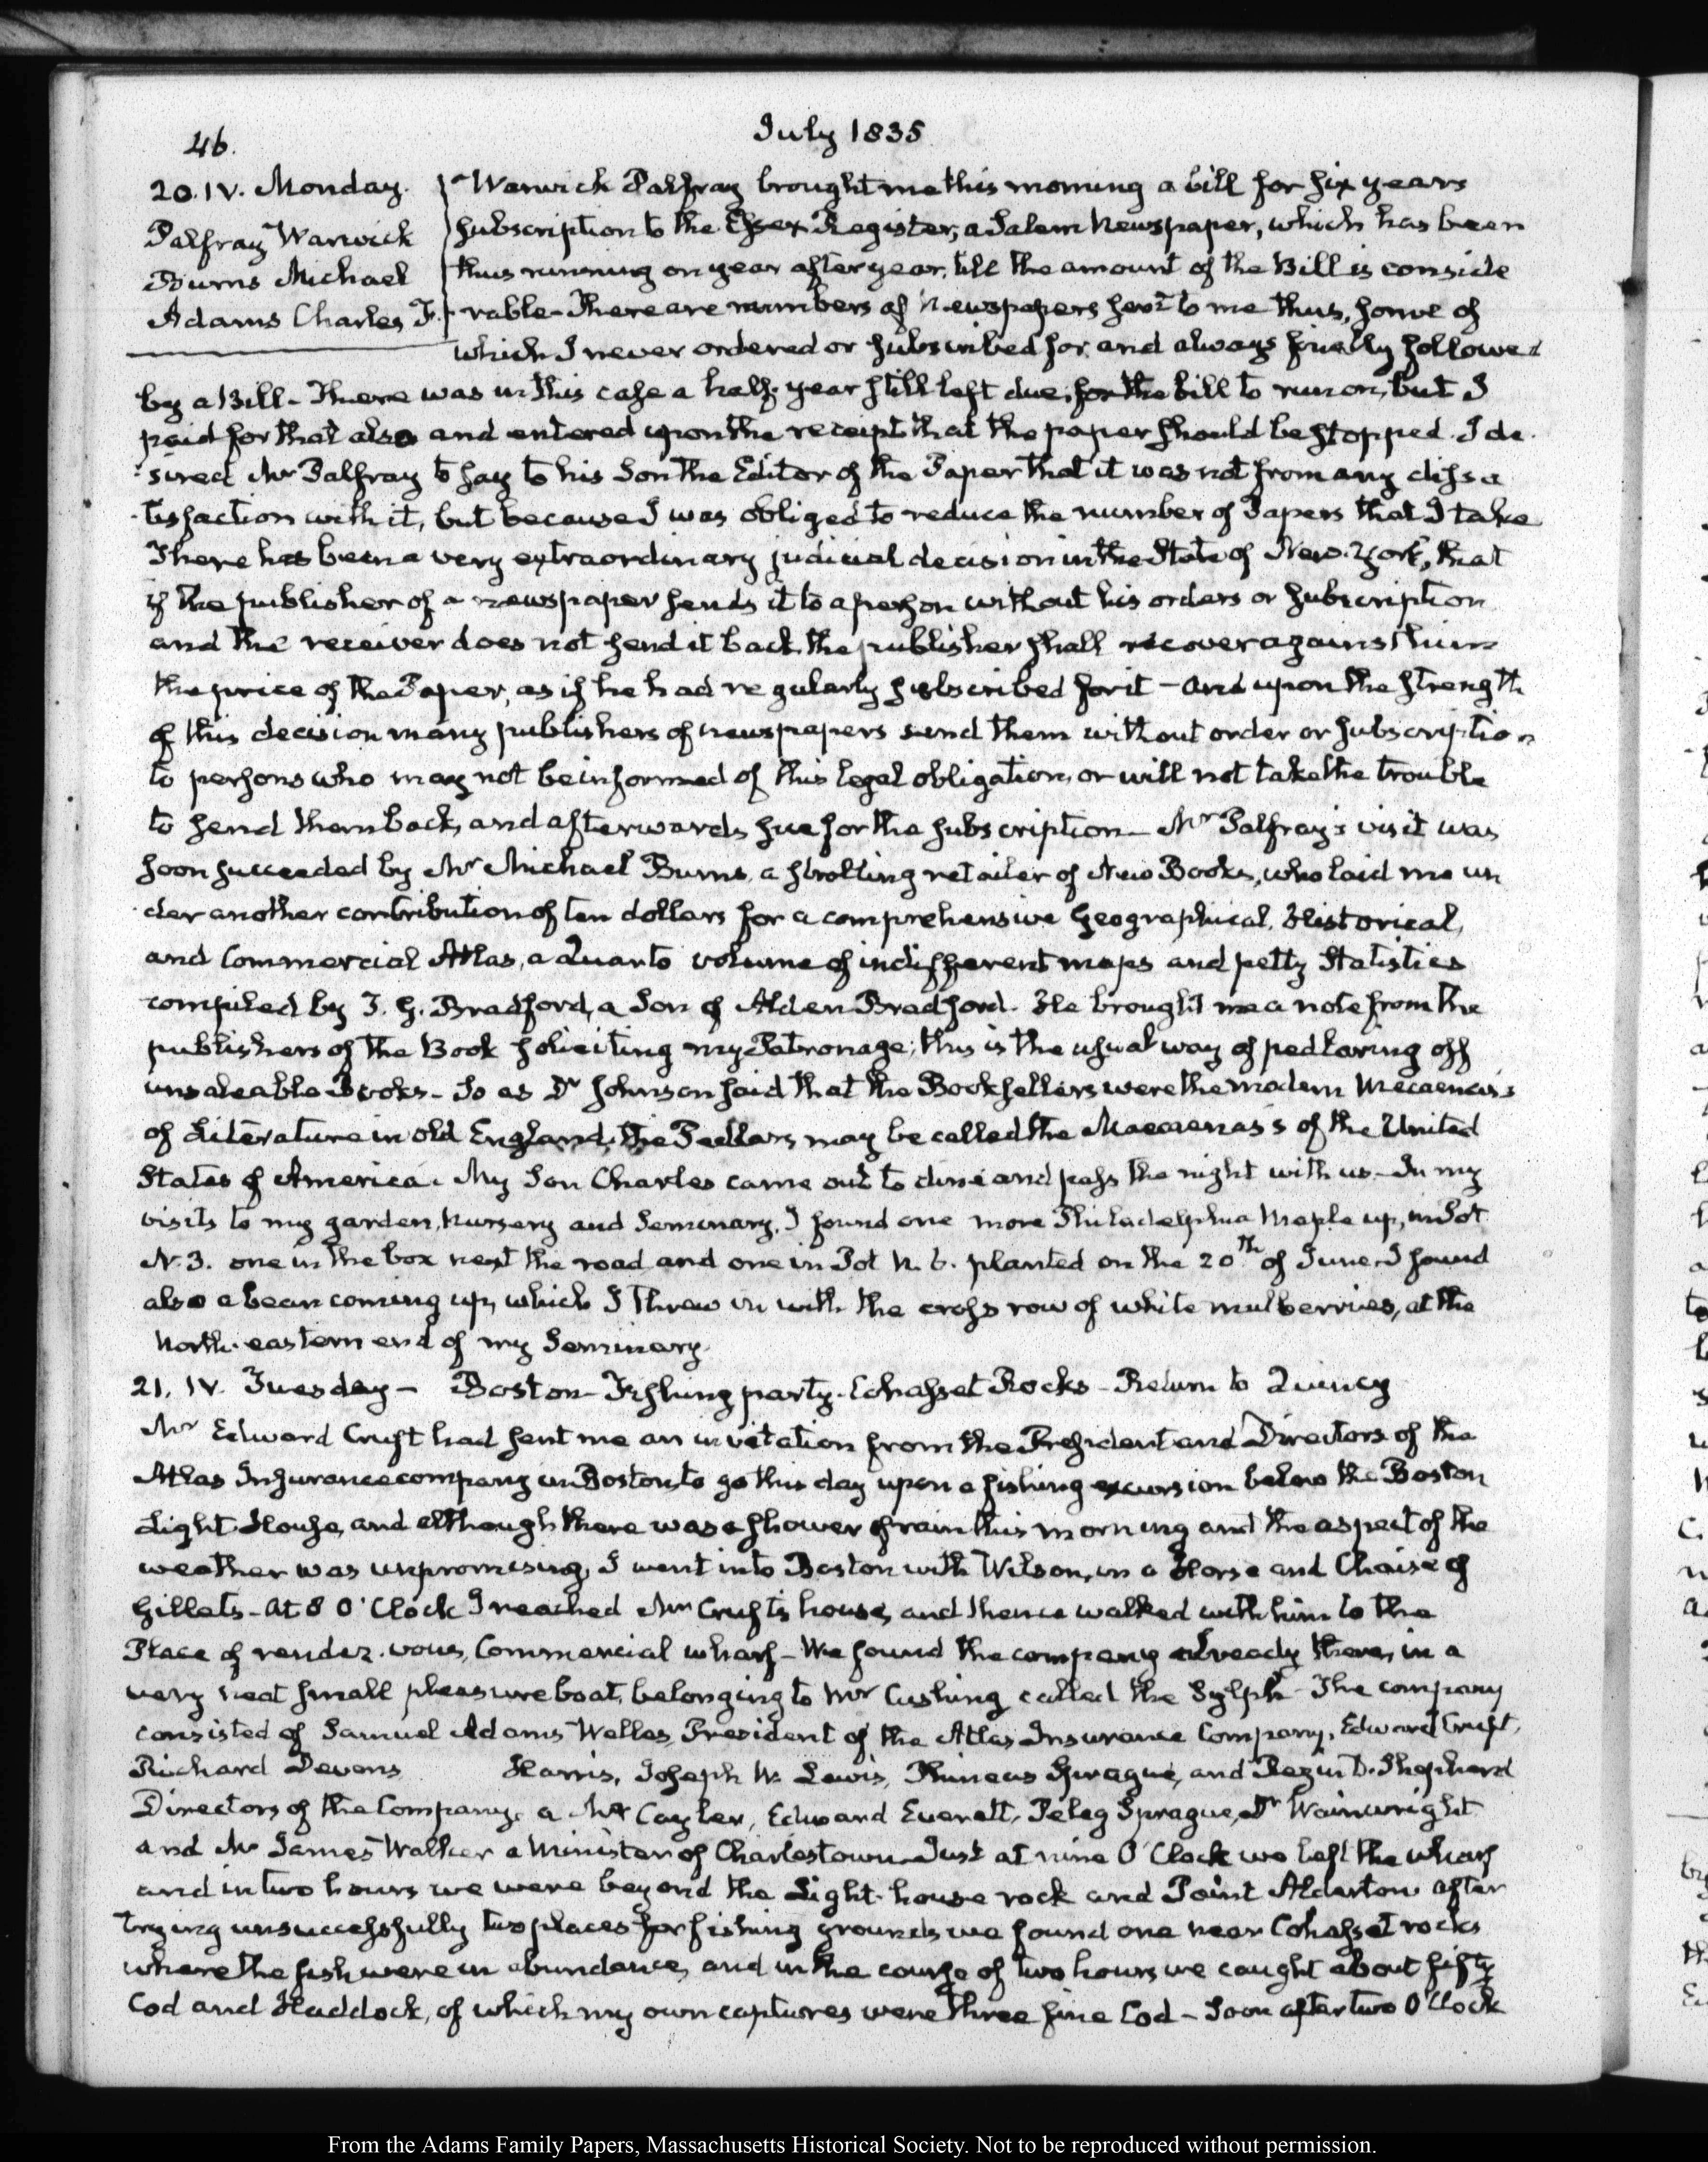 46.
July 1835
20. IV. Monday.
Palfray Warwick
Burns Michael
Adams Charles F.
Warwick Palfray brought me this morning a bill for six years
subscription to the Essex Register, a Salem Newspaper, which has been
thus running on year after year, till the amount of the Bill is conside
rable - There are numbers of Newspapers sent to me thus, some of
which I never ordered or subscribed for, and always finally followed
by a Bill - There was in this case a half-year still left due, for the bill to run on, but I
paid for that also and entered upon the receipt that the paper should be stopped. I de-
sired Mr Palfray to say to his Son the Editor of the Paper that it was not from any dissa
tisfaction with it, but because I was obliged to reduce the number of Papers that I take
There has been a very extraordinary judicial decision in the State of New-York, that
if the publisher of a newspaper sends it to a person without his orders or subscription
and the receiver does not send it back, the publisher shall recover against him
the price of the Paper, as if he had regularly subscribed for it - and upon the strength
of this decision many publishers of newspapers send them without order or subscription
to persons who may not be informed of this legal obligation, or will not take the trouble
to send them back, and afterwards sue for the subscription - Mr Palfray's visit was
soon succeeded by Mr Michael Burns, a strolling retailer of New Books, who laid me un
der another contribution of ten dollars for a comprehensive Geographical, Historical,
and Commercial Atlas, a Quarto volume of indifferent maps and petty Statistics
compiled by T. G. Bradford, a Son of Alden Bradford. He brought me a note from the
publishers of the Book soliciting my Patronage; this is the usual way of pedlaring off
unsaleable Books - So as Dr Johnson said that the Booksellers were the modern Mecaenas's
of Literature in old England, the Pedlars may be called the Maecenas's of the United
States of America. My Son Charles came out to dine and pass the night with us - In my
visits to my garden, Nursery and Seminary, I found one more Philadelphia Maple up, in Pot
N. 3. one in the box next the road and one in Pot N. 6. planted on the 20th of June. I found
also a bean coming up, which I threw in with the cross row of white mulberries, at the
North-eastern end of my Seminary.
21. IV. Tuesday - Boston - Fishing party. Cohasset Rocks - Return to Quincy
Mr Edward Cruft had sent me an invitation from the President and Directors of the
Atlas Insurance company in Boston, to go this day upon a fishing excursion below the Boston
Light-House, and although there was a shower of rain this morning and the aspect of the
weather was unpromising, I went into Boston with Wilson, in a Horse and Chaise of
Gillets - At 8 O'Clock I reached Mr Cruft's house, and thence walked with him to the
Place of rendez-vous, Commercial wharf - We found the company already there, in a
very neat small pleasure boat, belonging to Mr Cushing called the Sylph - The company
consisted of Samuel Adams Welles, President of the Atlas Insurance Company, Edward Cruft,
Richard Devens Harris, Joseph W. Lewis, Phineas Sprague, and Rezin D. Shepherd
Directors of the Company, a Mr, Edward Everett, Peleg Sprague, Dr Wainwright
and Mr James Walker a Minister of Charlestown. Just at nine O'Clock we left the wharf
and in two hours we were beyond the Light-house rock and Point Alderton after
trying unsuccessfully two places for fishing grounds, we found one near Cohasset rocks
where the fish were in abundance, and in the course of two hours, we caught about fifty
Cod and Haddock, of which my own captures were three fine Cod - Soon after two O'Clock
From the Adams Family Papers, Massachusetts Historical Society. Not to be reproduced without permission.